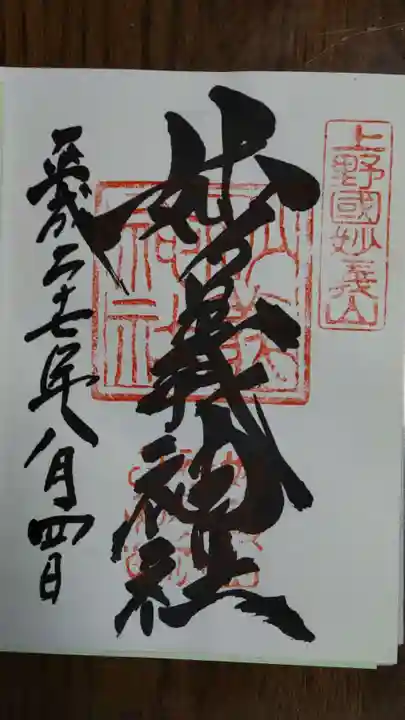 上野國妙義山
妙義神社
平成二十七年八月四日